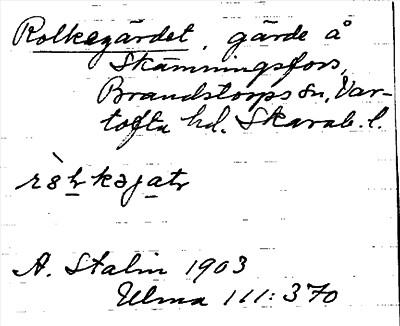 Rolkegärdet, gärde å
Skämningsfors,
Brandstorps sn, Var-
tofta hd. Skarab. l.
A. Stalin 1903
Ulma 111:370